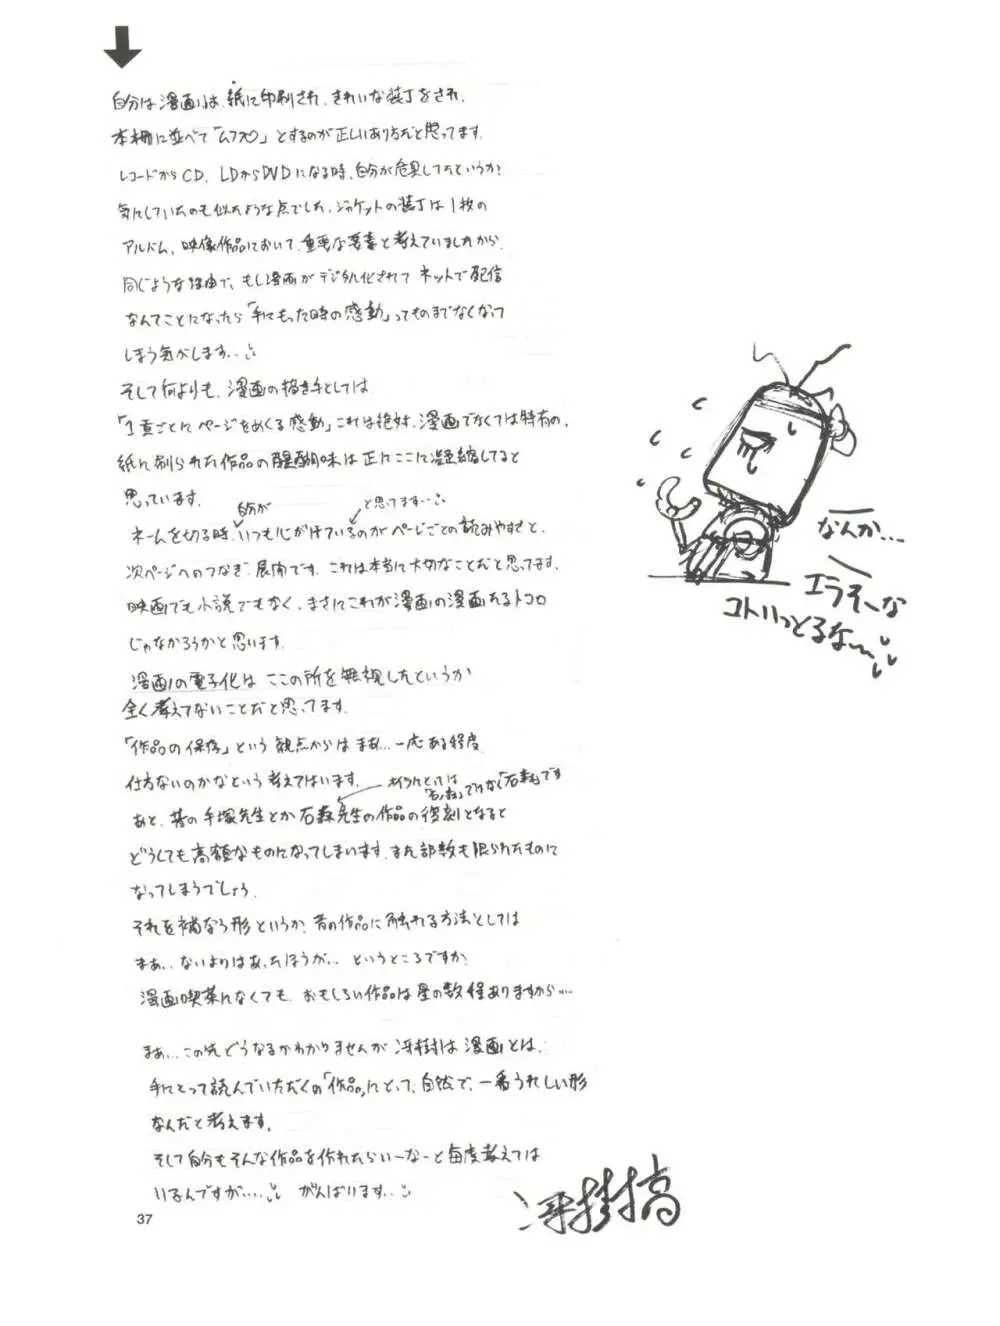 自分は漫画は、紙に印刷され、きれいな装丁をされ、
本棚に並べて「ムフフ♡」とするのが正しいあり方だと思ってます。
レコードからCD、LDからDVDになる時、自分が危具してたというか?
気にしていたのも似たような点でした。ジャケットの装丁は1枚の
アルバム、映像作品において、重要な要素と考えていましたから。
同じような理由で、もし漫画がデジタル化されてネットで配信
なんてことになったら「手にもった時の感動」ってものまでなくなって
しまう気がします…
そして何よりも、漫画の描き手としては
「1頁ごとにページをめくる感動」これは絶対、漫画でなくては特有の、
紙に刷られた作品の醍醐味は正にここに凝縮してると
思っています。
自分が
と思ってます…
ネームを切る時、いつも心がけているのがページごとの読みやすさと、
次ページへのつなぎ、展開です。これは本当に大切なことだと思ってます。
映画でも小説でもなく、まさにこれが漫画の漫画たるトコロ
じゃなかろうかと思います。
漫画の電子化はここの所を無視したというか
全く考えてないことだと思ってます。
「作品の保存」という観点からはまあ…一応ある程度
仕方ないのかなという考えではいます。
オイラにとっては
「石ノ森」ではなく「石森」です
あと、昔の手塚先生とか石森先生の作品の復刻となると
どうしても高額なものになってしまいます。また部数も限られたものに
なってしまうでしょう。
それを補なう形というか、昔の作品に触れる方法としては
まあ…ないよりはあったほうが…というところですか?
漫画喫茶になくても、おもしろい作品は星の数程ありますから…
まあ…この先どうなるかわかりませんが冴樹は漫画とは、
手にとって読んでいただくの「作品」にとって、自然で、一番うれしい形
なんだと考えます。
そして自分もそんな作品を作れたらいーなーと毎度考えては
いるんですが…… がんばります…
なんか…
エラそーな
コトいっとるな〜
冴樹高
37